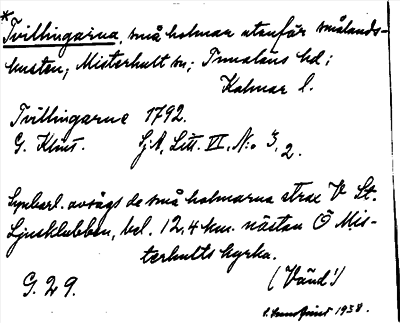 *Tvillingarna, små holmar utanför smålands-
kusten; Misterhult sn; Tunaläns hd;
Kalmar l.
Tvillingarne 1792.
G. Klint. SjA, Litt. VI, No 3,2.
Synbarl. avsågs de små holmarna strax V St.
Ljusklubben, bel. 12,4 km. nästan Ö Mis-
terhults kyrka.
G. 29. (Vänd!)
1938.